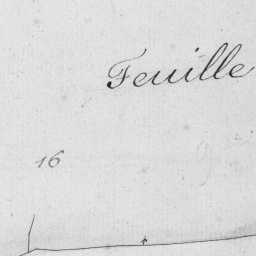 Feuille
16